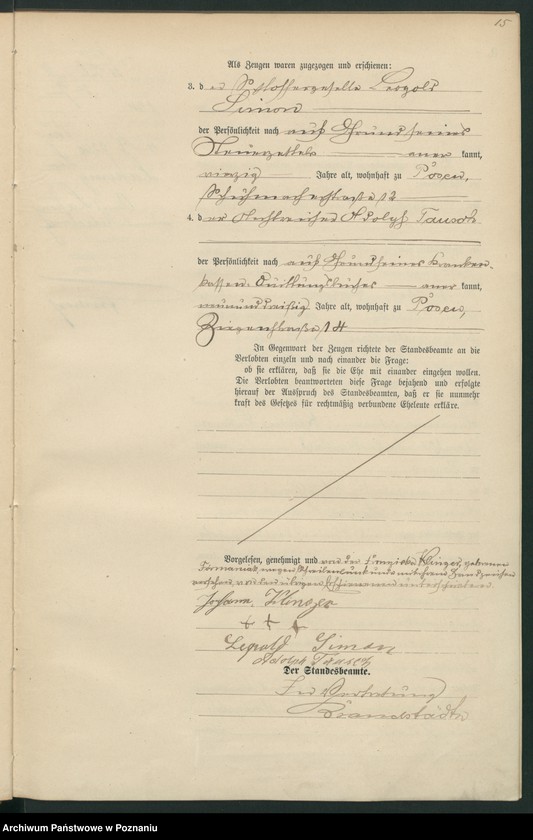 15
Als Zeugen waren zugezogen und erschienen:
3. der Schlossergeselle Leopold
Simon
der Persönlichkeit nach auf Grund seines
Steuerzettels aner kannt,
vierzig Jahre alt, wohnhaft zu Posen,
Schuhmacherstraße 12
4. der Adolph Tausch
der Persönlichkeit nach auf Grund seines Kranken-
kassen-Quittungsbuches aner kannt,
neununddreißig Jahre alt, wohnhaft zu Posen,
14
In Gegenwart der Zeugen richtete der Standesbeamte an die
Verlobten einzeln und nach einander die Frage:
ob sie erklären, daß sie die Ehe mit einander eingehen wollen.
Die Verlobten beantworteten diese Frage bejahend und erfolgte
hierauf der Ausspruch des Standesbeamten, daß er sie nunmehr
kraft des Gesetzes für rechtmäßig verbundene Eheleute erkläre.
Vorgelesen, genehmigt und von der Klinger, geborene
wegen Schreibensunkunde mit ihrem Handzeichen
versehen, von den übrigen Erschienenen unterschrieben
Johann Klinger
+ + +
Leopold Simon
Adolph Tausch
Der Standesbeamte.
In Vertretung
Brandstädter
Archiwum Państwowe w Poznaniu